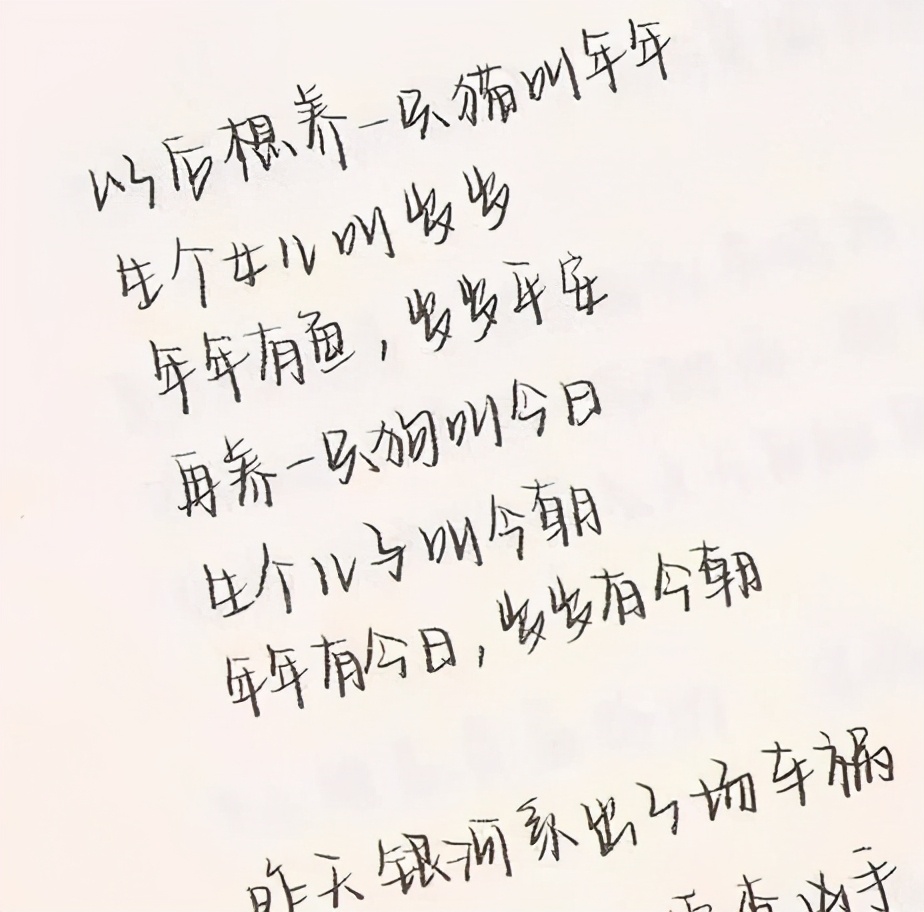 以后想养一只猫叫年年
生个女儿叫岁岁
年年有鱼，岁岁平安
再养一只狗叫今日
生个儿子叫今朝
年年有今日，岁岁有今朝
昨天银河系出了场车祸